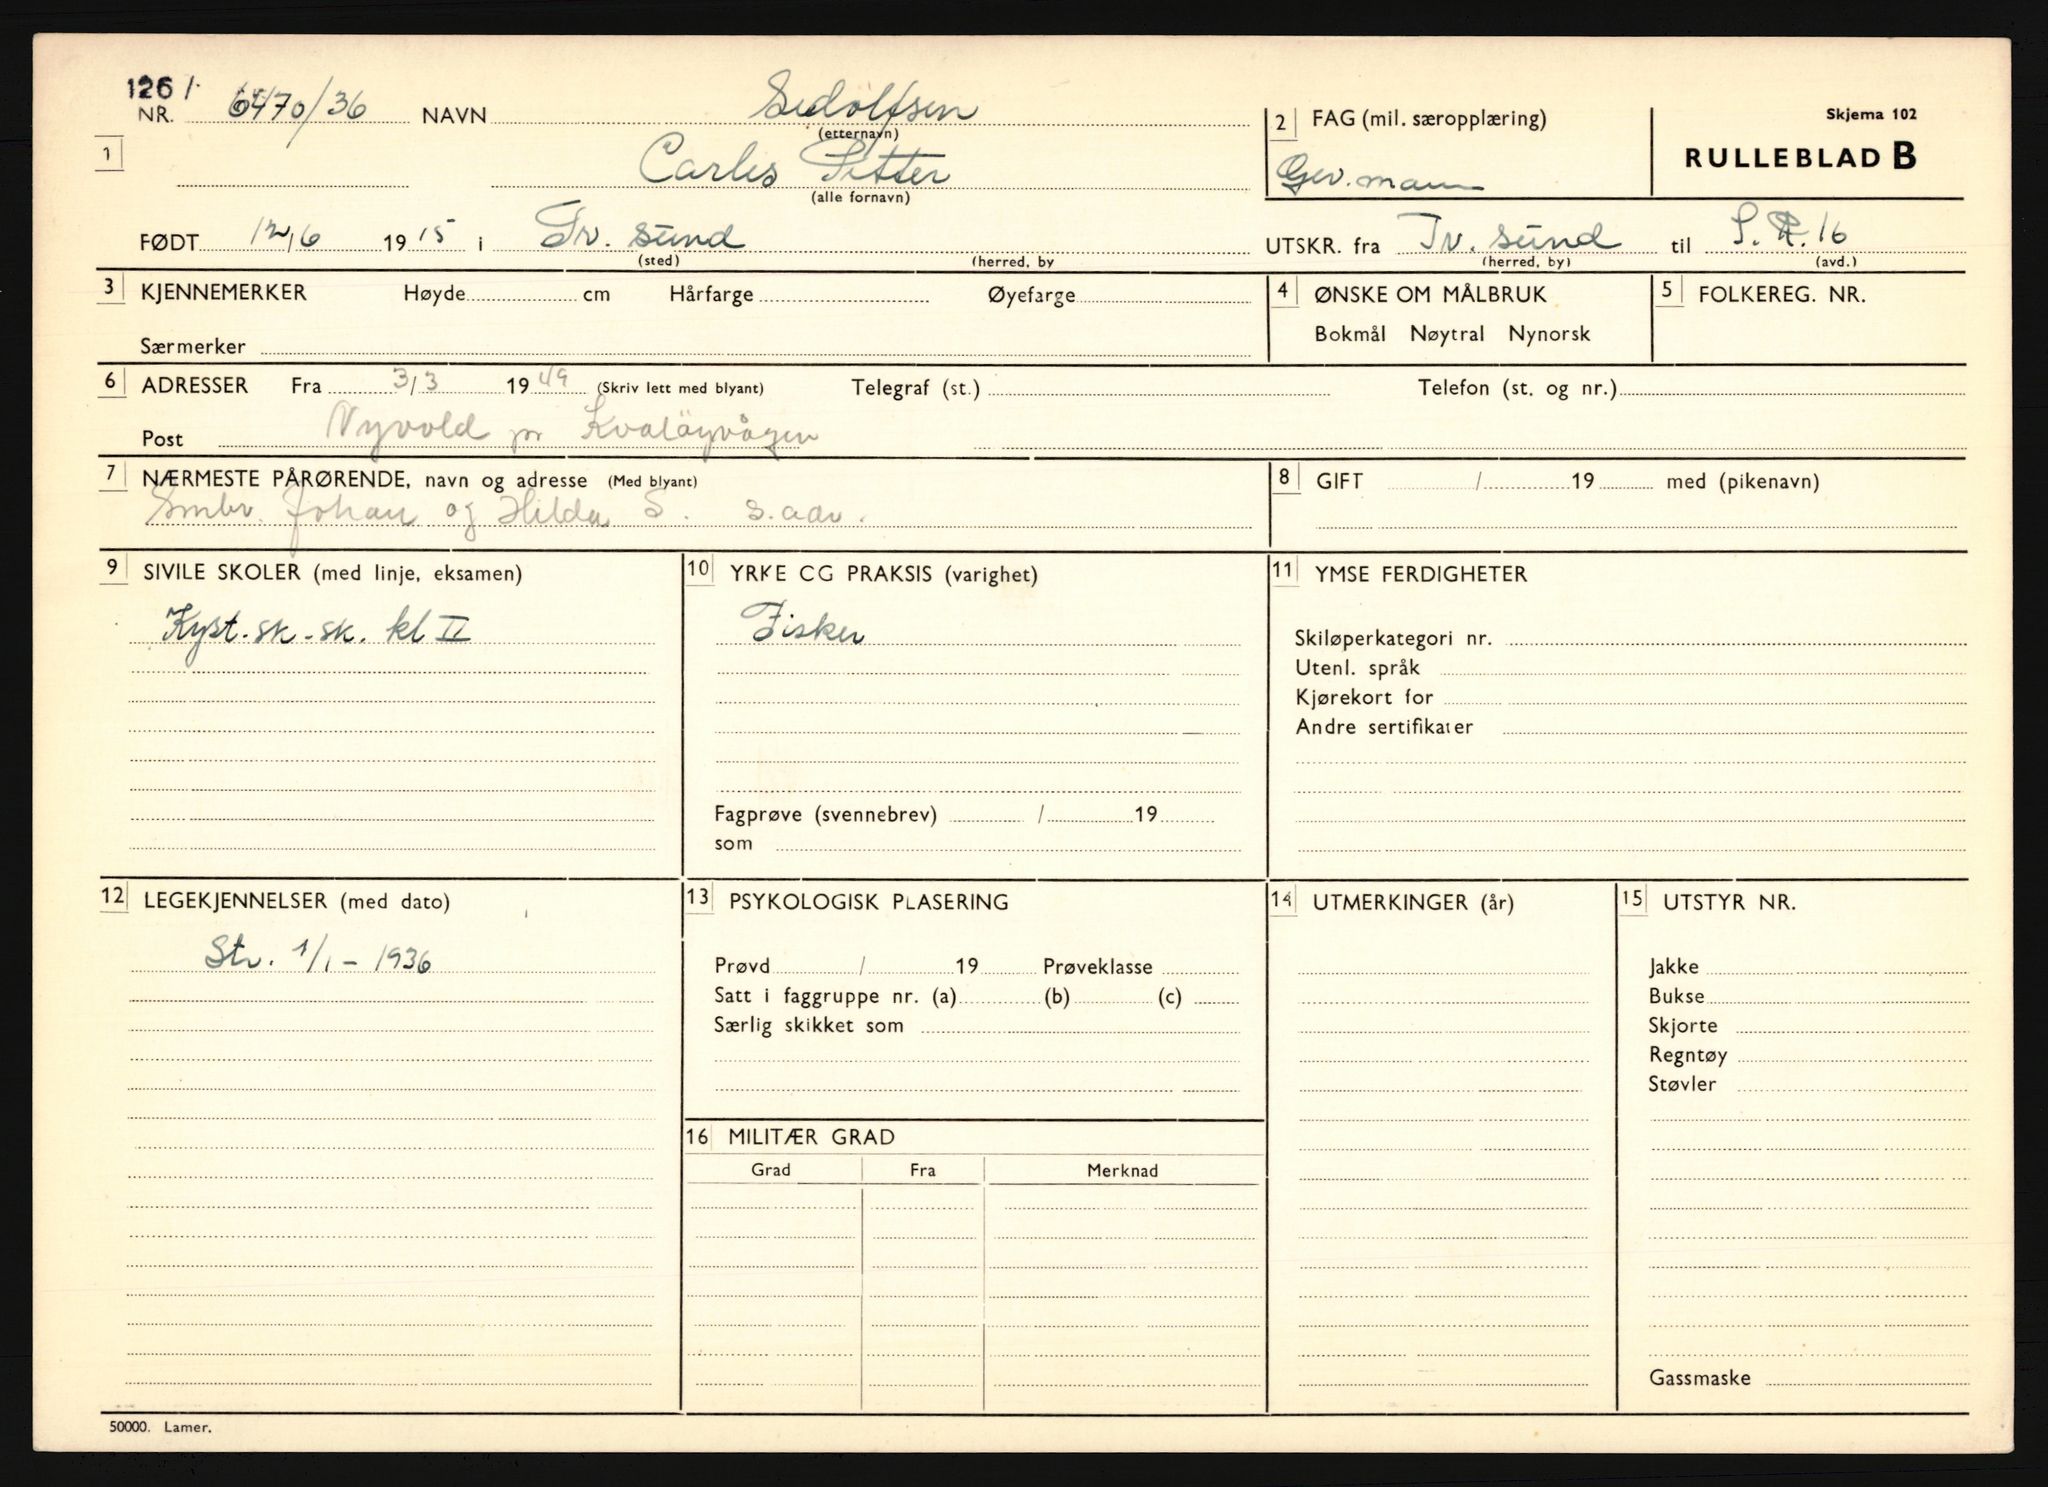 1261.
NR. 6470/36 NAVN Sidolfsen
(etternavn)
1 Carles Petter
(alle fornavn)
2 FAG (mil. særopplæring)
Gev. mann
Skjema 102
RULLEBLAD B
FØDT 12/6 1915 i Tr. sund
(sted) (herred, by
UTSKR. fra Tr. sund til S. R. 16
(herred, by) (avd.)
3 KJENNEMERKER Høyde cm Hårfarge Øyefarge
Særmerker
4 ØNSKE OM MÅLBRUK
Bokmål Nøytral Nynorsk
5 FOLKEREG. NR.
6 ADRESSER Fra 3/3 1949 (Skriv lett med blyant) Telegraf (st.) Telefon (st. og nr.)
Post Nyvold pr Kvaløyvågen
7 NÆRMESTE PÅRØRENDE, navn og adresse (Med blyant)
Smbr. Johan og Hilda S. s. adr.
8 GIFT / 19 med (pikenavn)
9 SIVILE SKOLER (med linje, eksamen)
Kyst. sk. - sk. kl II
10 YRKE OG PRAKSIS (varighet)
Fisker
Fagprøve (svennebrev) / 19
som
11 YMSE FERDIGHETER
Skiløperkategori nr.
Utenl. språk
Kjørekort for
Andre sertifikater
12 LEGEKJENNELSER (med dato)
Str. 1/1 - 1936
13 PSYKOLOGISK PLASERING
Prøvd / 19 Prøveklasse
Satt i faggruppe nr. (a) (b) (c)
Særlig skikket som
14 UTMERKINGER (år)
15 UTSTYR NR.
Jakke
Bukse
Skjorte
Regntøy
Støvler
Gassmaske
16 MILITÆR GRAD
Grad Fra Merknad
50000. Lamer.